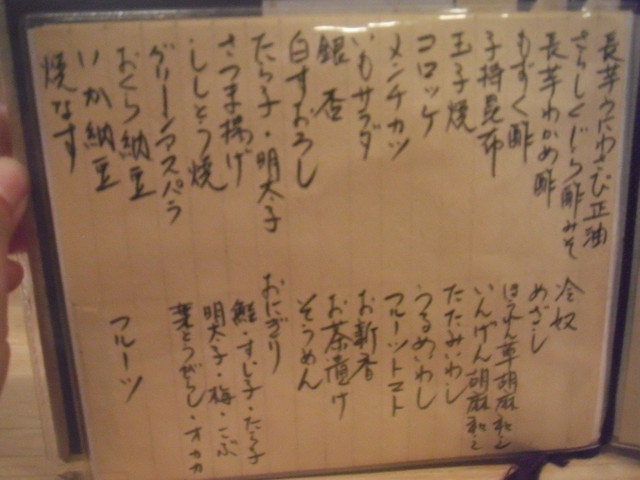 長芋うにわさび正油
さらしくじら酢みそ
長芋わかめ酢
もずく酢
子持昆布
玉子焼
コロッケ
メンチカツ
いもサラダ
銀杏
白すおろし
たら子・明太子
さつま揚げ
ししとう焼
グリーンアスパラ
おくら納豆
いか納豆
焼なす
冷奴
めざし
ほうれん草胡麻和え
いんげん胡麻和え
たたみいわし
うるめいわし
フルーツトマト
お新香
お茶漬け
そうめん
おにぎり
鮭・すじ子・たら子
明太子・梅・こぶ
葉とうがらし・オカカ
フルーツ